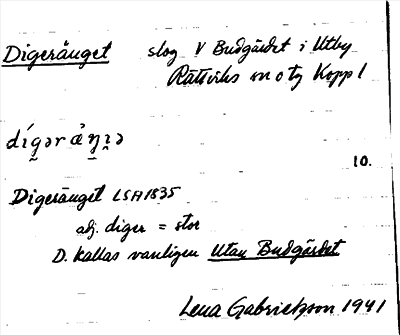 Digeränget slog V Budgärdet i Utby
Rättviks sn o tg Kopp l
dígərä̀ŋi̯ə
10.
Digeränget LSA 1835
adj. diger = stor
D. kallas vanligen Utan Budgärdet
Lena Gabrielsson 1941